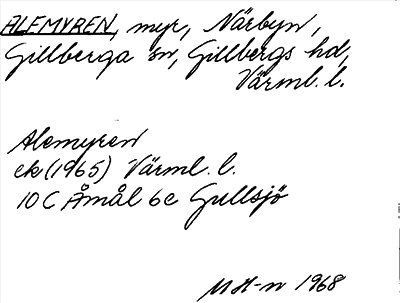 ALEMYREN, myr, Närbyn,
Gillberga sn, Gillbergs hd,
Värml. l.
Alemyren
ek (1965) Värml. l.
10 C Åmål 6e Gullsjö
MH-n 1968